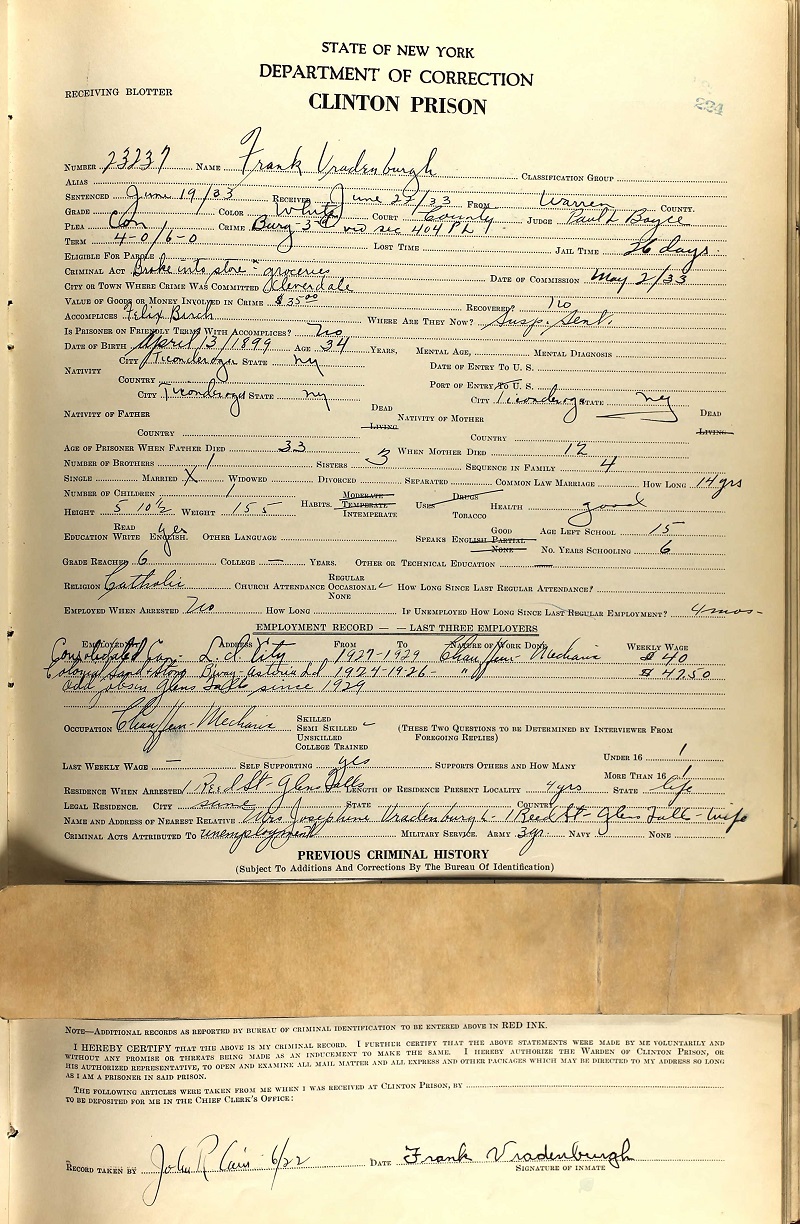 STATE OF NEW YORK
DEPARTMENT OF CORRECTION
RECEIVING BLOTTER
CLINTON PRISON
224
NUMBER 23237 NAME Frank Vradenburgh CLASSIFICATION GROUP
ALIAS
SENTENCED June 19/33 RECEIVED June 22/33 FROM Warren COUNTY.
GRADE COLOR White COURT County JUDGE Paul L Boyce
PLEA Con CRIME Burg 3d vio sec 404 PL
TERM 4-0/6-0 LOST TIME JAIL TIME 26 days
ELIGIBLE FOR PAROLE
CRIMINAL ACT Broke into store - groceries DATE OF COMMISSION May 2/33
CITY OR TOWN WHERE CRIME WAS COMMITTED Cleverdale
VALUE OF GOODS OR MONEY INVOLVED IN CRIME $35 00 RECOVERED? no
ACCOMPLICES Felix Birch WHERE ARE THEY NOW? Susp. Sent.
IS PRISONER ON FRIENDLY TERMS WITH ACCOMPLICES? No
DATE OF BIRTH April/3/1899 AGE 34 YEARS, MENTAL AGE, MENTAL DIAGNOSIS
NATIVITY CITY Ticonderoga STATE ny DATE OF ENTRY TO U. S.
COUNTRY PORT OF ENTRY TO U. S.
CITY Ticonderoga STATE ny CITY Ticonderoga STATE ny
NATIVITY OF FATHER DEAD LIVING NATIVITY OF MOTHER DEAD LIVING
COUNTRY COUNTRY
AGE OF PRISONER WHEN FATHER DIED 33 WHEN MOTHER DIED 12
NUMBER OF BROTHERS 1 SISTERS 3 SEQUENCE IN FAMILY 4
SINGLE MARRIED X WIDOWED DIVORCED SEPARATED COMMON LAW MARRIAGE HOW LONG 14 yrs
NUMBER OF CHILDREN 1
HEIGHT 5 10½ WEIGHT 155 HABITS. MODERATE TEMPERATE INTEMPERATE USES DRUGS TOBACCO HEALTH good
EDUCATION READ WRITE ENGLISH. yes OTHER LANGUAGE SPEAKS ENGLISH GOOD PARTIAL NONE AGE LEFT SCHOOL 15
NO. YEARS SCHOOLING 6
GRADE REACHED 6 COLLEGE — YEARS. OTHER OR TECHNICAL EDUCATION —
RELIGION Catholic CHURCH ATTENDANCE REGULAR OCCASIONAL NONE HOW LONG SINCE LAST REGULAR ATTENDANCE?
EMPLOYED WHEN ARRESTED No HOW LONG IF UNEMPLOYED HOW LONG SINCE LAST REGULAR EMPLOYMENT? 4 mos-
EMPLOYMENT RECORD — — LAST THREE EMPLOYERS
EMPLOYED BY ADDRESS FROM TO NATURE OF WORK DONE WEEKLY WAGE
Consolidated L. I City 1927-1929 Chauffeur-Mechanic $40
Colonial Sand & Stone Astoria L.I 1924-1926- " $47.50
odd jobs in Glens Falls since 1929
OCCUPATION Chauffeur-Mechanic SKILLED SEMI SKILLED UNSKILLED COLLEGE TRAINED (THESE TWO QUESTIONS TO BE DETERMINED BY INTERVIEWER FROM FOREGOING REPLIES)
LAST WEEKLY WAGE — SELF SUPPORTING yes SUPPORTS OTHERS AND HOW MANY UNDER 16 1
MORE THAN 16 1
RESIDENCE WHEN ARRESTED 1 Reed St-Glens Falls LENGTH OF RESIDENCE PRESENT LOCALITY 4 yrs STATE life
LEGAL RESIDENCE. CITY same STATE COUNTRY
NAME AND ADDRESS OF NEAREST RELATIVE Mrs Josephine Vradenburgh- 1 Reed St-Glens Fall-wife
CRIMINAL ACTS ATTRIBUTED TO unemployment MILITARY SERVICE. ARMY 3 yr NAVY NONE
PREVIOUS CRIMINAL HISTORY
(Subject To Additions And Corrections By The Bureau Of Identification)
NOTE—ADDITIONAL RECORDS AS REPORTED BY BUREAU OF CRIMINAL IDENTIFICATION TO BE ENTERED ABOVE IN RED INK.
I HEREBY CERTIFY THAT THE ABOVE IS MY CRIMINAL RECORD. I FURTHER CERTIFY THAT THE ABOVE STATEMENTS WERE MADE BY ME VOLUNTARILY AND
WITHOUT ANY PROMISE OR THREATS BEING MADE AS AN INDUCEMENT TO MAKE THE SAME. I HEREBY AUTHORIZE THE WARDEN OF CLINTON PRISON, OR
HIS AUTHORIZED REPRESENTATIVE, TO OPEN AND EXAMINE ALL MAIL MATTER AND ALL EXPRESS AND OTHER PACKAGES WHICH MAY BE DIRECTED TO MY ADDRESS SO LONG
AS I AM A PRISONER IN SAID PRISON.
THE FOLLOWING ARTICLES WERE TAKEN FROM ME WHEN I WAS RECEIVED AT CLINTON PRISON, BY
TO BE DEPOSITED FOR ME IN THE CHIEF CLERK'S OFFICE:
RECORD TAKEN BY John R Cain 6/22 DATE Frank Vradenburgh
SIGNATURE OF INMATE